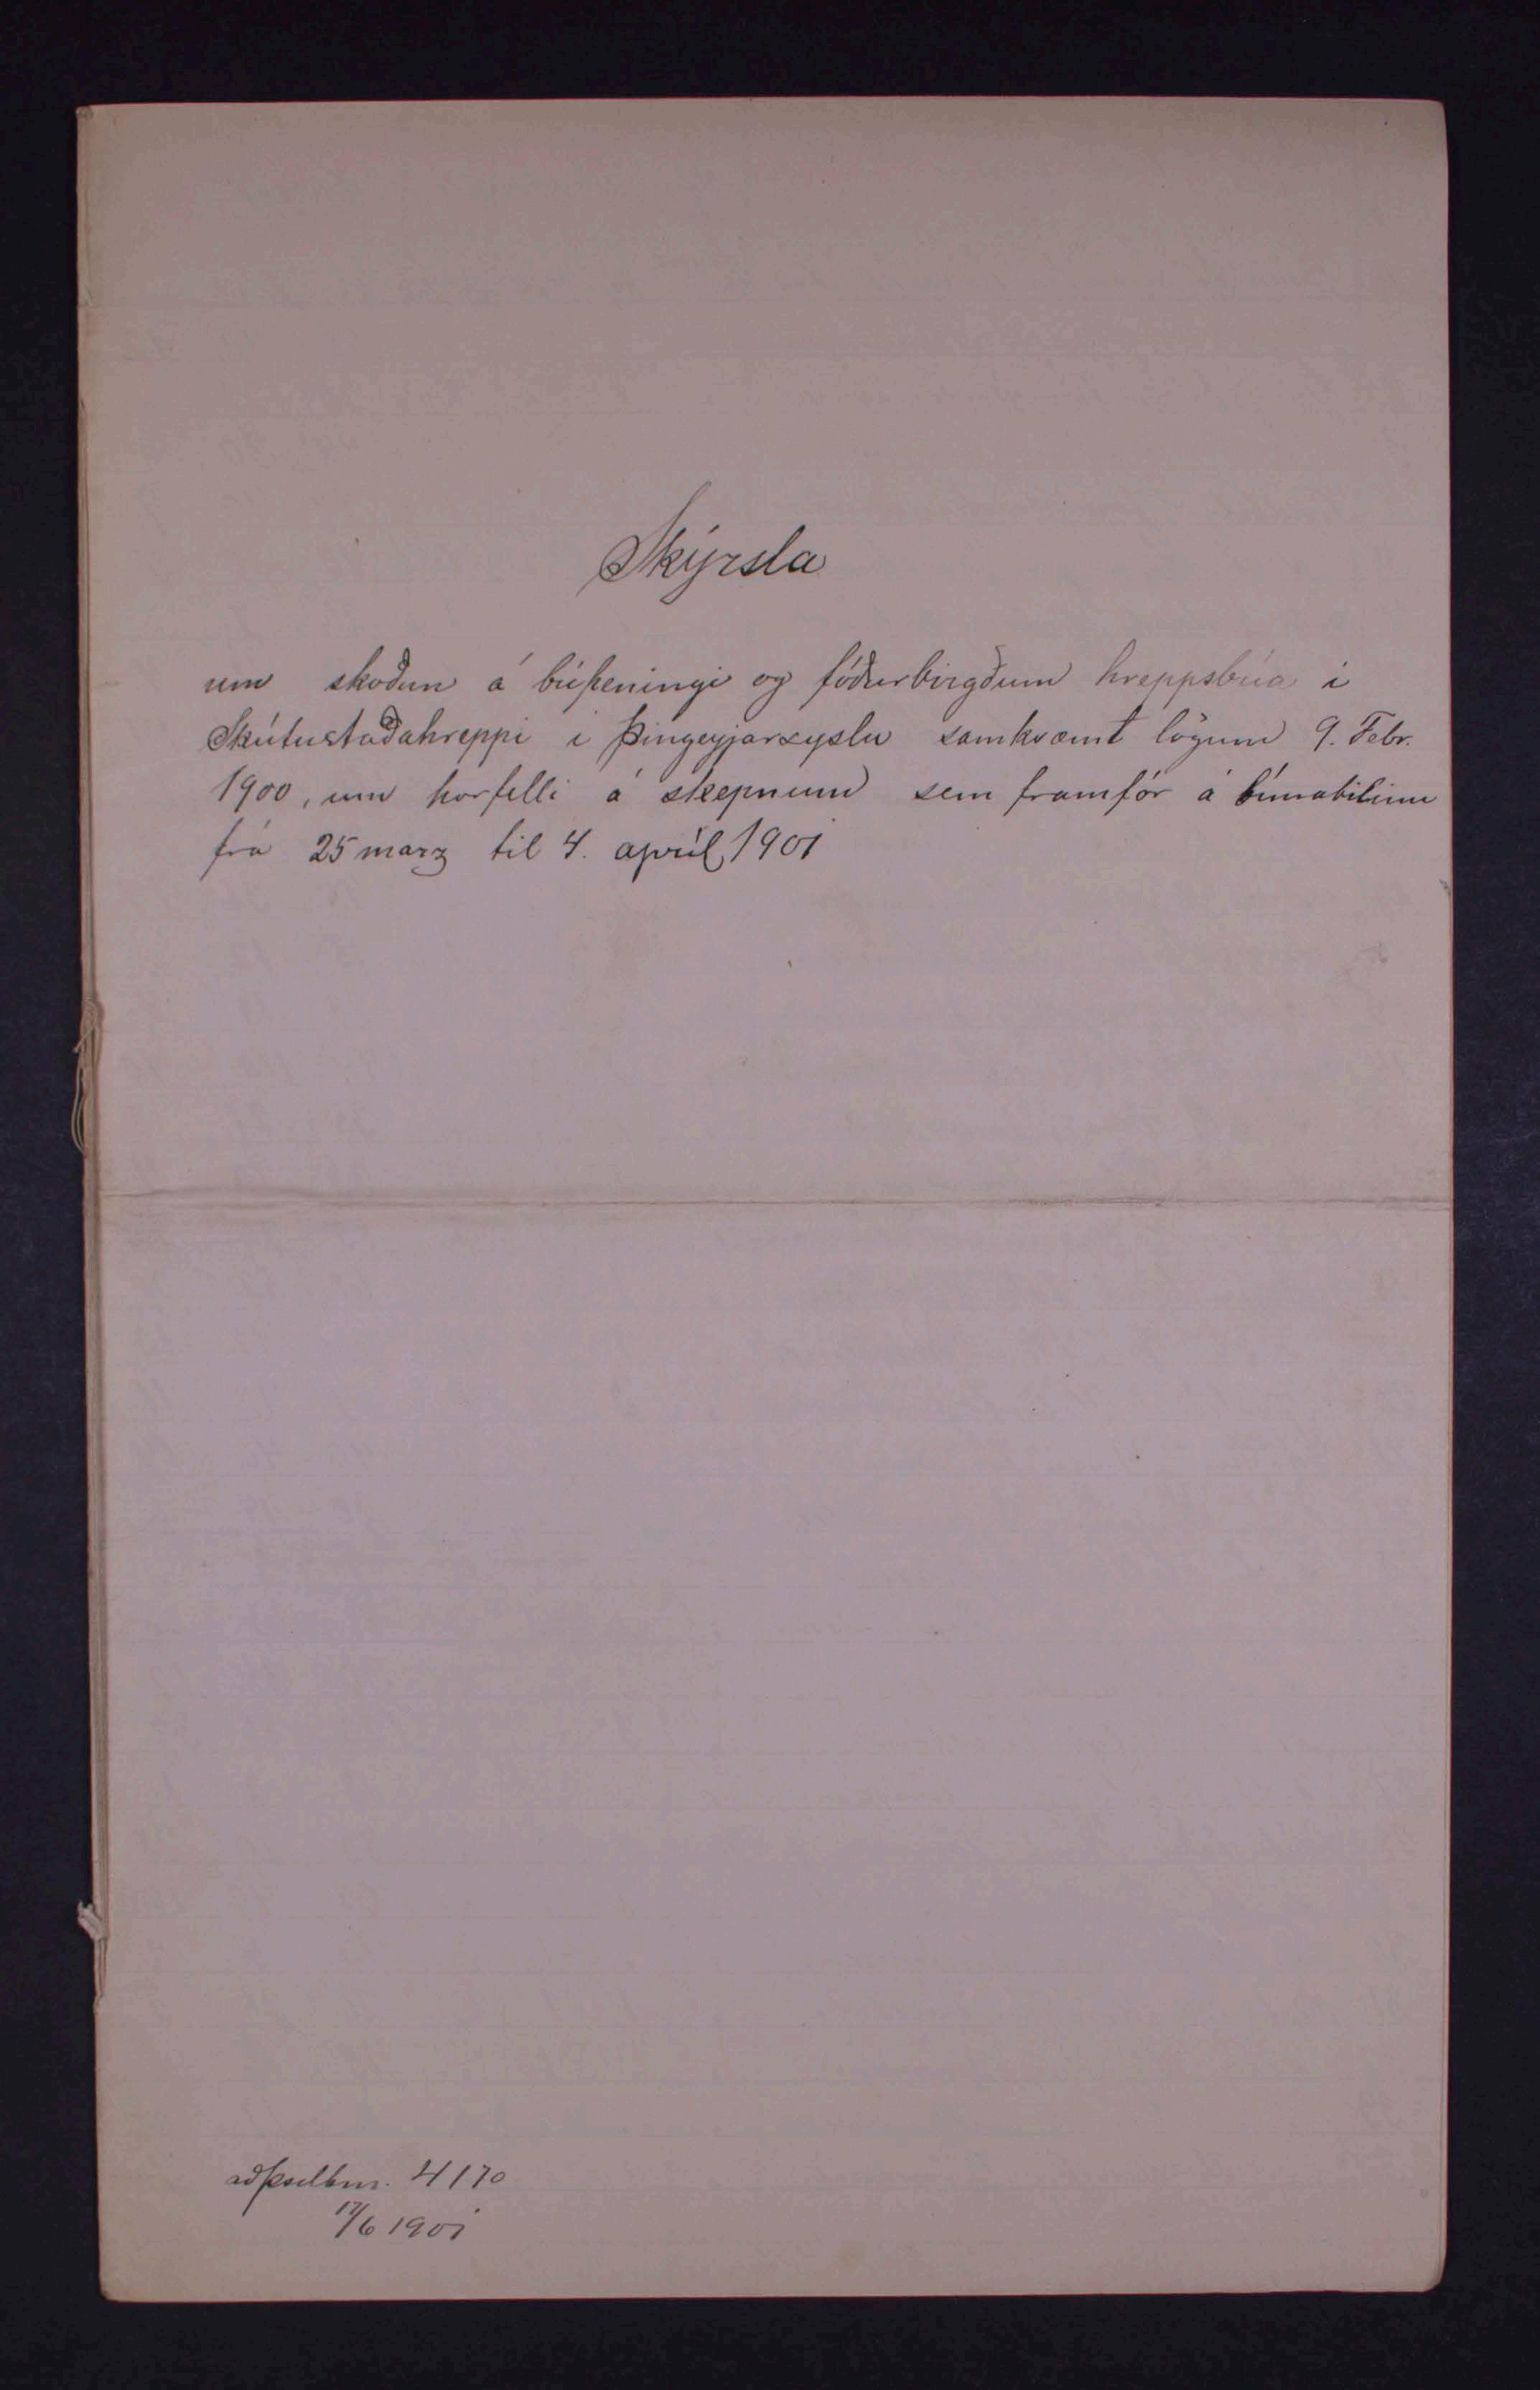 Skýrsla
um skoðun á búpeningi og fóðurbirgðum hreppsbúa í
Skútustaðahreppi í Þingeyjarsyslu samkvæmt lögum 9. Febr.
1900, um horfelli á skepnum sem framfór á tímabilinu
frá 25 marz til 4. apríl 1901
4170
17/6 1901